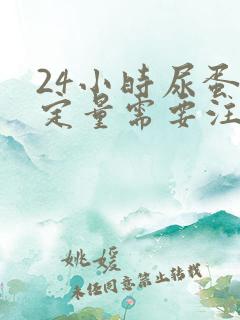 24小时尿蛋
定量需要注
姚媛
未经同意禁止转载